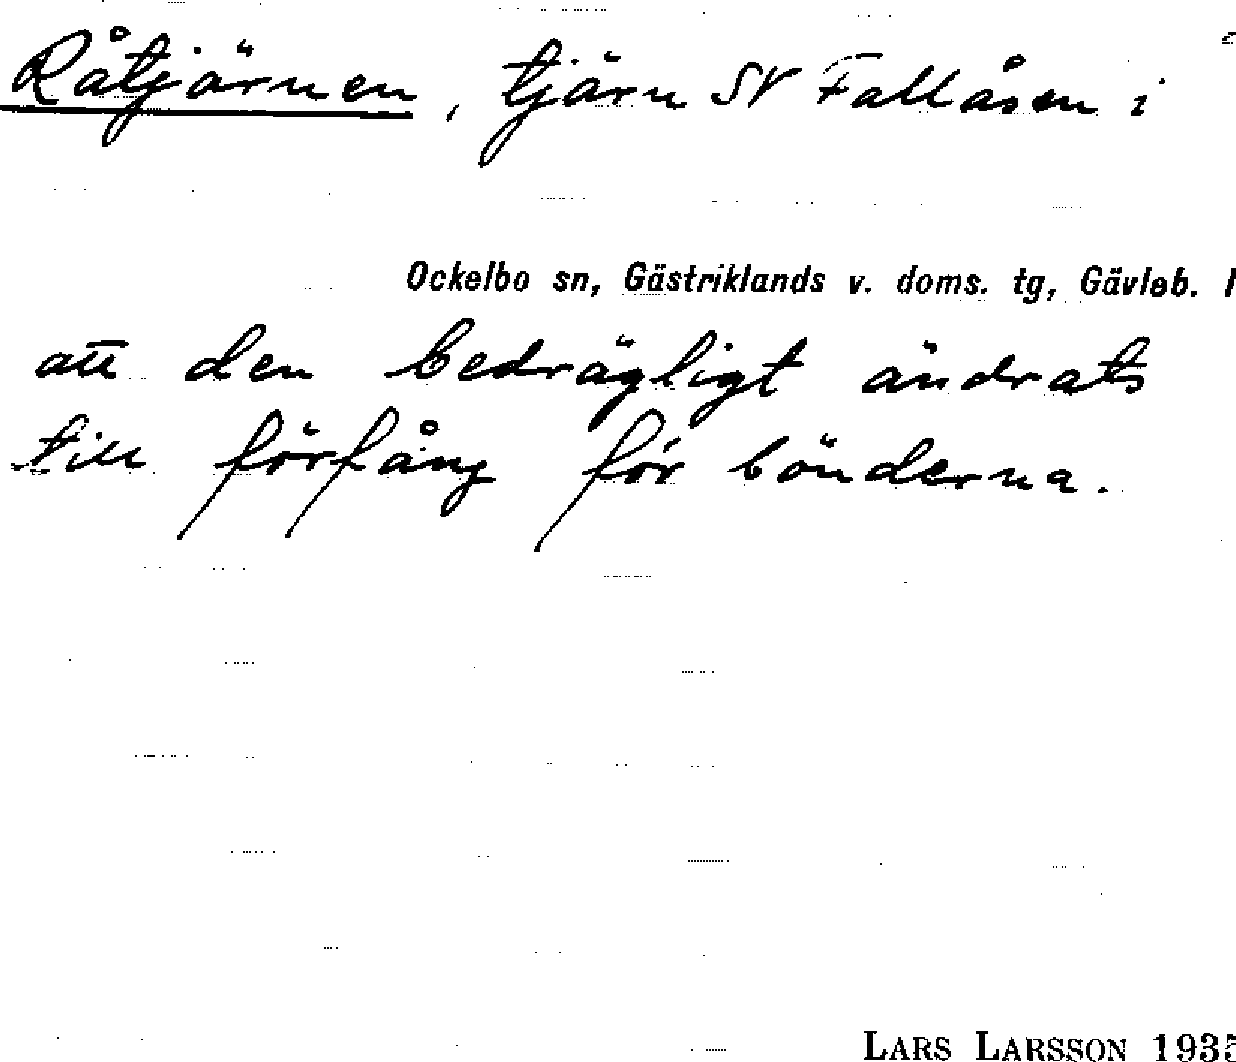 Råtjärnen, tjärn SV Fallåsen i
Ockelbo sn, Gästriklands v. doms. tg, Gävleb. l
att den bedrägligt ändrats
till förfång för bönderna.
LARS LARSSON 1935